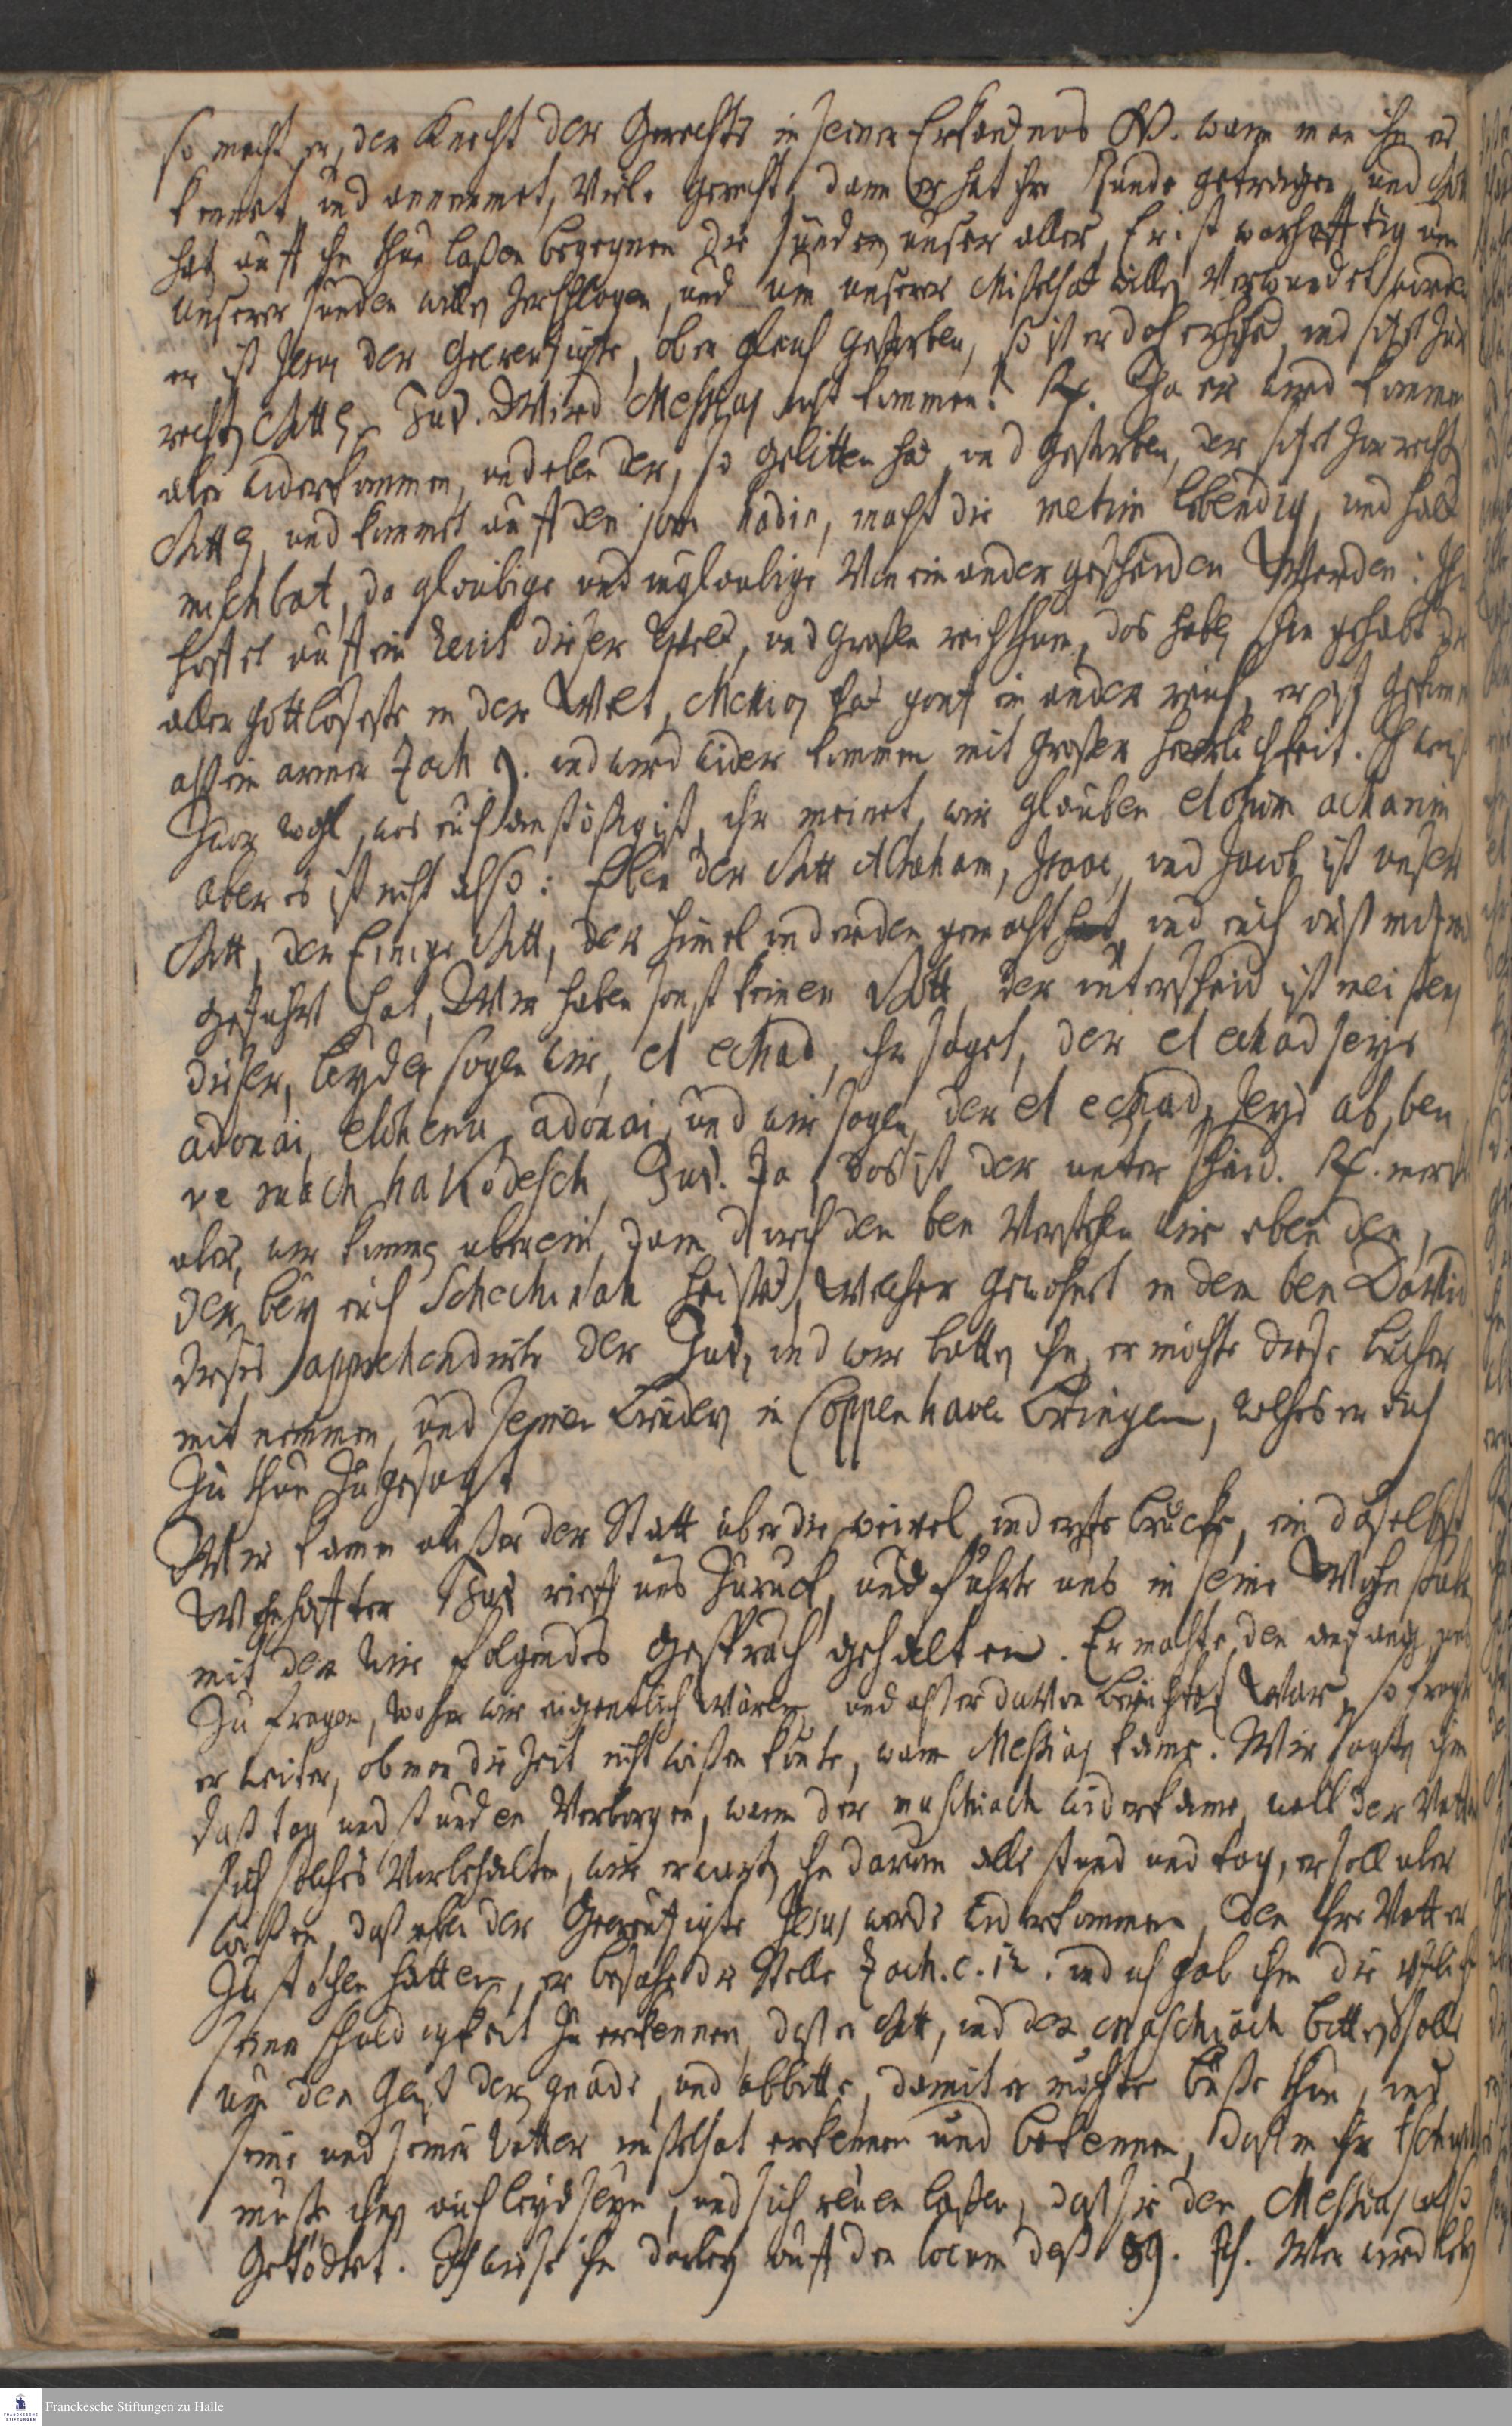 so macht er, der Knecht der Gerechte in seiner Erkandnus N. wann man ihn er
kennet und annemmet, Viele gerecht, dann Er hat ihre Sünde getragen und Gott
hat auff ihn thun laßen begegnen die Sünden unser aller, Er ist warhafftig um
unserer Sünden willen zerschlagen, und um unserer Missethat willen Verwundet worden
er ist Jesus der Gecreutzigte, aber gleich gestorben, so ist er doch erhöhet, und sitzet zur
rechten Gottes. Jud. Wird Messias nicht kommen? Rx. Ja er wird kommen
aber widerkommen, und eben der, so gelitten hat und gestorben, der sitzet zur rechten
Gottes, und kommet auff den jom hadin, macht die metim lebendig, und halt
mischbat, da glaubige und unglaubige Von einander gescheiden Werden: Ihr
hoffet auff ein Reich dieser Welt, und großen reichthum, das haben schon gehabt die
aller gottloseste in der Welt, Messias hat gantz ein ander reich, er ist gekommen
alß ein armer Zach 9. und wird wider kommen mit großer herrlichkeit. Ich weiß
gar wohl, was euch anstößig ist, ihr meinet, wir glauben elohim acharim
aber es ist nicht also: Eben der Gott Abraham, Isaac, und Jacob ist unser
Gott, der Einige Gott, der himel und erden gemacht hat, und euch auß
geführt hat, Wir haben sonst keinen Gott, der unterscheid ist meisten
dieser, beyde sagen wir, el echad, ihr saget, der el echad seye
adonai, elohenu, adonai, und wir sagen der el echad, seye ab, ben
ve ruach hakodesch, Jud. Ja, das ist der unterscheid. Rx. merckt
aber, wir kommen uberein, dann durch den ben Verstehen wir eben den,
der bey euch Schechinah heisset, Welcher gewohnet in dem ben David
dieses apprehendirte der Jud, und wir batten ihn, er möchte diese bücher
mit nemmen, und seinen brüdern in Coppenhaven bringen, welches er auch
zu thun zugesagt
Wir kamen außer der Statt über die weixel und erste brucke, ein daselbst
Wohnhaffter Jud rieff uns zuruck, und führte uns in seine Wohnstube
mit dem wir folgendes Gespräch gehalten. Er machte den anfang uns
zu fragen, woher wir eigentlich wären, und alß er davon berichtet war, so fragte
er weiter, ob man die Zeit nicht wißen könte, wann Messias käme. Wir sagten ihm
daß tag und stunden Verborgen, wann der maschiach widerkäme, weil der Vatter
sich solches Vorbehalten, wir erwarten ihn darum alle stund und tag, er soll aber
wißen, daß eben der Gecreutzigte Jesus werde widerkommen, den ihre Vätter
zerstochen hätten, er besahe die Stelle Zach. c. 12. und ich gab ihm die
seine schuldigkeit zu erkennen, daß er Gott, und den maschiach bitten solle
um den Geist der gnade, und abbitte, damit er möchte buße thun, und
seine und seiner Vätter missethat erkennen und bekennen, daß in ihr
muste ihm auch leyd seyn, und sich reuen laßen, daß sie den Messias also
getödtet. Ich wiese ihn dabey auff den locum deß 89. Ps. Wer wird
Franckesche Stiftungen zu Halle